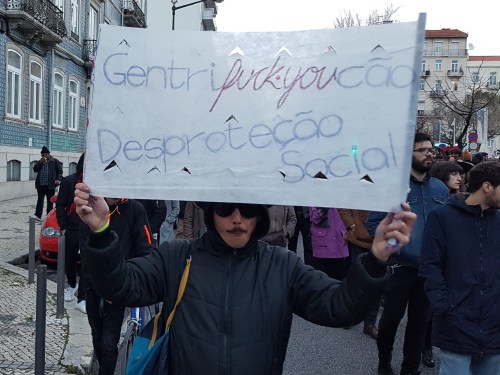 Gentrifuck•youcão
Desproteção
Social